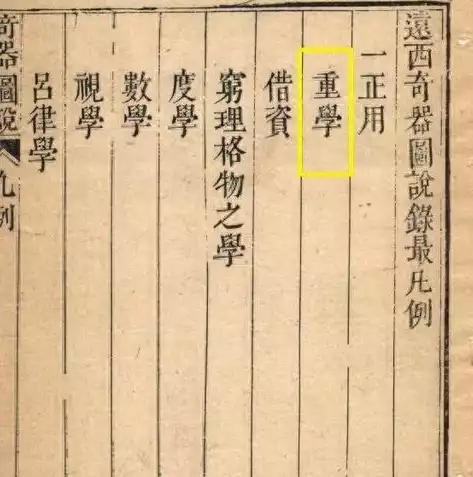 遠西奇器圖說錄最凡例
一正用
重學
借資
窮理格物之學
度學
數學
視學
呂律學
奇器圖說 凡例